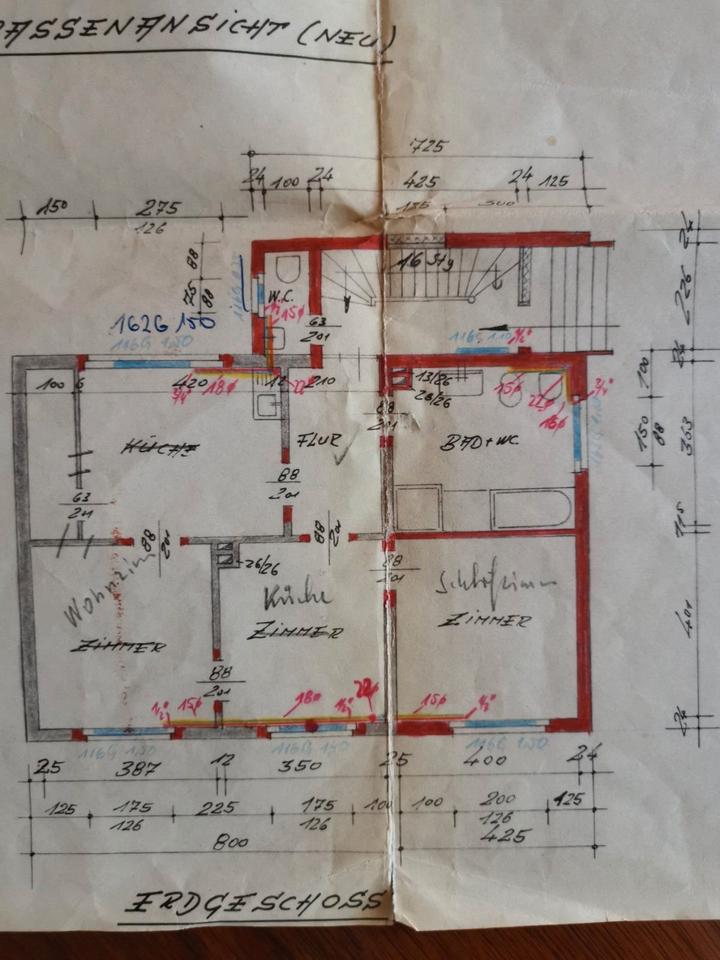 ASSENANSICHT (NEU)
725
24 100 24 425 24 125
150 275
126
88
75
88
16 Stg
W.C.
15ø
63
201
162G 150
116G 150
100 6 420 12 210
3/4" 18ø
13/26
26/26
15ø 22ø 3/4"
18ø
88
201
KÜCHE
FLUR
BAD+WC
88
201
63
201
88
201
88
201
26/26
88
201
Wohnzim
Küche
ZIMMER
ZIMMER
ZIMMER
88
201
1/2" 15ø 18ø 1/2" 22ø 15ø 1/2"
116G 150
116G 150
116G 150
25 387 12 350 25 400 24
125 175 225 175 100 100 200 125
126 126 126
800 425
100
150
88
226
303
115
401
ERDGESCHOSS